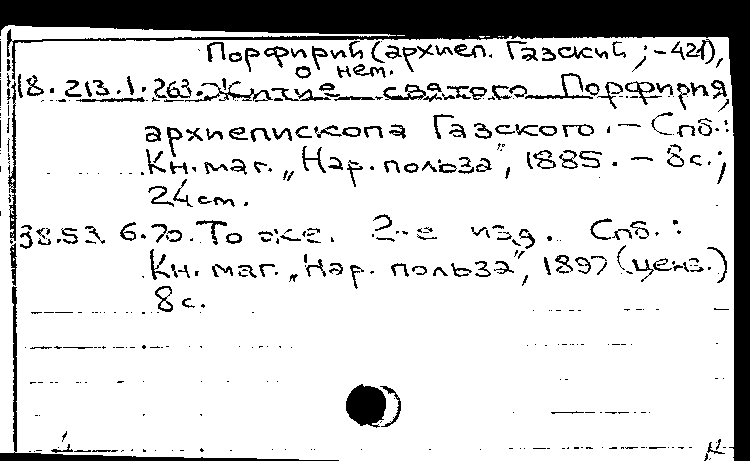 Порфирий (архиеп. Газский ; -421),
о нем.
18.213.1.263. Житие святого Порфирия,
архиепископа Газского. – Спб.:
Кн. маг. „Нар. польза", 1885. – 8 с.;
24 см.
38.53.6.70. То же. 2-е изд. Спб.:
Кн. маг. „Нар. польза", 1897 (ценз.)
8 с.